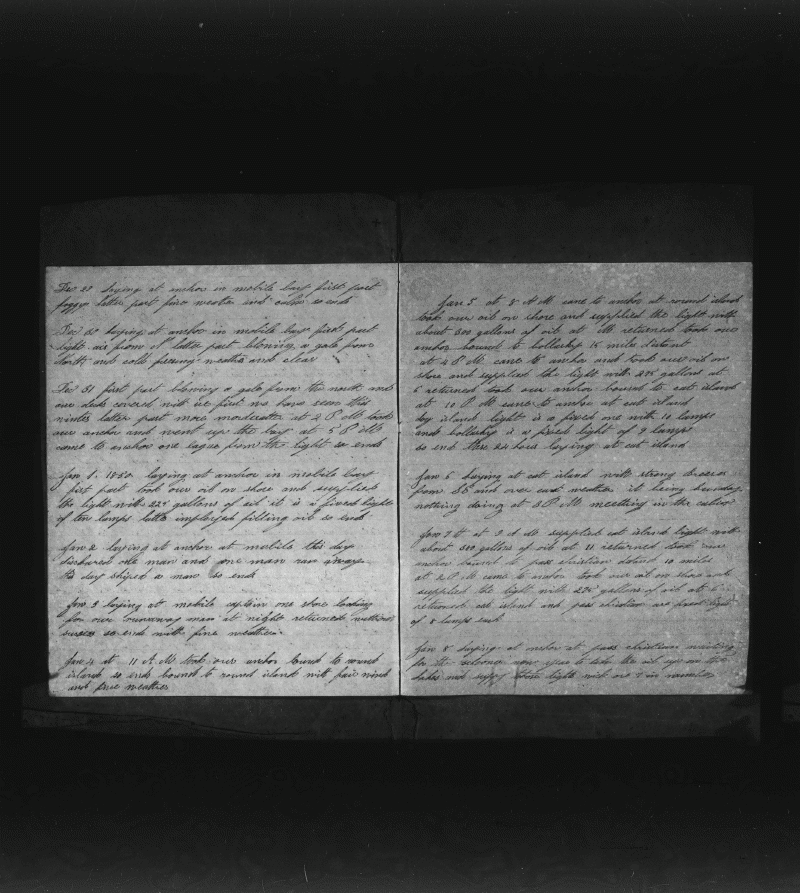 Dec 29 laying at anchor in mobile bay first part
foggy latter part fine weather and calm so ends
Dec 30 laying at anchor in mobile bay first part
light airs from latter part blowing a gale from
North and cold weather and clear
Dec 31 first part blowing a gale from the north and
our deck covered with ice first we have seen this
winter latter part more moderate at 2 P M took
our anchor and went up the bay at 5 P M
came to anchor one league from the light so ends
Jan 1. 1850 laying at anchor in mobile bay
first part took our oil on shore and supplied
the light with 225 gallons of oil it is a fixed light
of ten lamps latter imployed filling oil so ends
Jan 2 laying at anchor at mobile this day
discharged one man and one man ran away
day shiped a man so ends
Jan 3 laying at mobile captain one shore looking
for our runaway man at night returned without
so ends with fine weather.
Jan 4 at 11 A M took our anchor bound to round
island so ends bound to round island with fair wind
and fine weather
Jan 5 at 8 A M came to anchor at round island
took our oil on shore and supplied the light with
about 300 gallons of oil at M returned took our
anchor bound to 15 mile distant
at 4 P M came to anchor and took our oil on
shore and supplied the light with 275 gallons at
6 returned took our anchor bound to cat island
at 10 P M came to anchor at cat island
island light is a fixed one with 10 lamps
and is a fixed light of 9 lamps
so end these 24 hours laying at cat island
Jan 6 laying at cat island with strong breezes
from SE and over cast weather it being sunday
nothing doing at 3 P M meetting in the cabin
Jan 7th at 9 A M supplied cat island light with
about 300 gallons of oil at 11 returned took our
anchor bound to pass christian distant 10 miles
at 2 P M came to anchor took our oil on shore and
supplied the light with 225 gallons of oil at
returned cat island and pass christian are fixed light
of 8 lamps each
Jan 8 laying at anchor at pass christian waiting
for the to take the oil up on the
lakes and supply those light with are in number